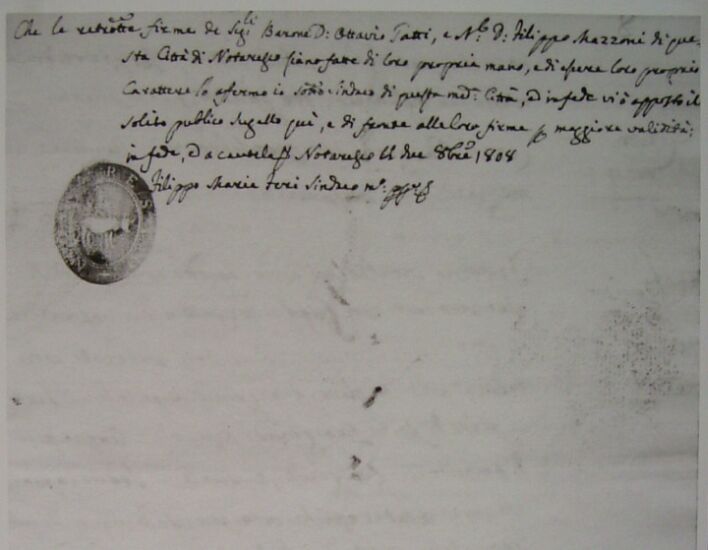 Che le retrõtte firme de Sig.li Barone D: Ottavio Tatti, e N.le D: Filippo Mazzoni di que=
sta Città di Notaresco siano fatte di loro propria mano, e di essere loro proprio
Carattere lo affermo io sotto Sindaco di questa med.a Città, ed in fede vi ò apposto il
solito publico Sugello quì, e di fronte alle loro firme p maggiore validità;
in fede, ed a cautela Notaresco li due 8bre 1808
Filippo Maria Sindaco
RES